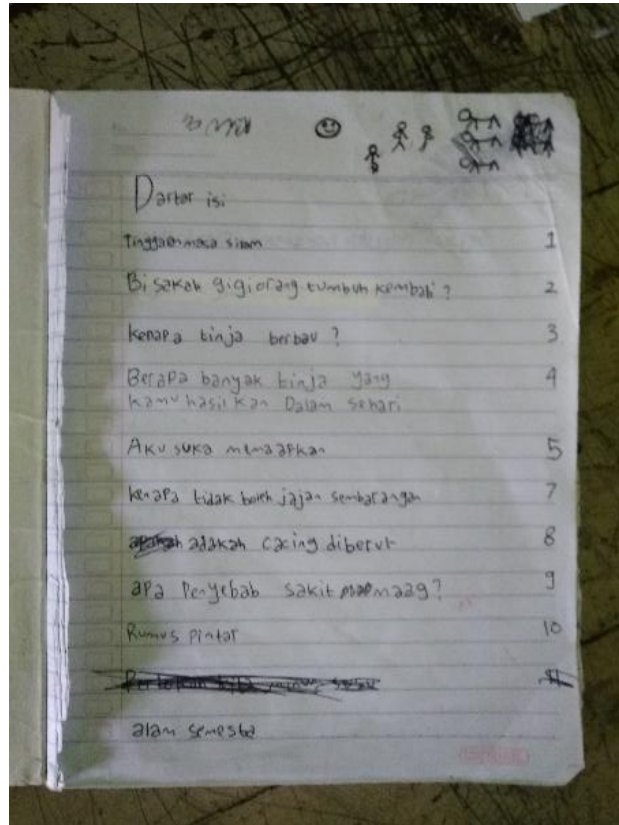 Dartar isi
tinggalan masa silam 1
Bisakah gigi orang tumbuh kembali? 2
kenapa tinja berbau? 3
Berapa banyak tinja yang 4
kamu hasilkan Dalam sehari
AKU suka memaapkan 5
kenapa tidak boleh jajan sembarangan 7
adakah cacing diberut 8
apa Penyebab sakit maag? 9
Rumus Pintar 10
alam semesta